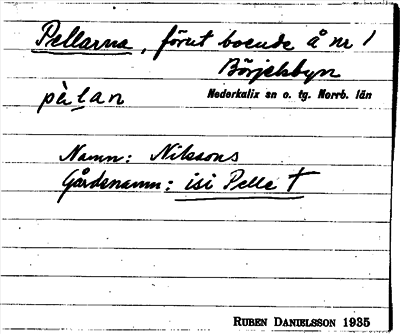 Pellarna, förut boende å nr 1
Börjelsbyn
pèlan
Nederkalix sn o. tg. Norrb. län
Namn: Nilssons
Gårdsnamn: isi Pelle †
RUBEN DANIELSSON 1935